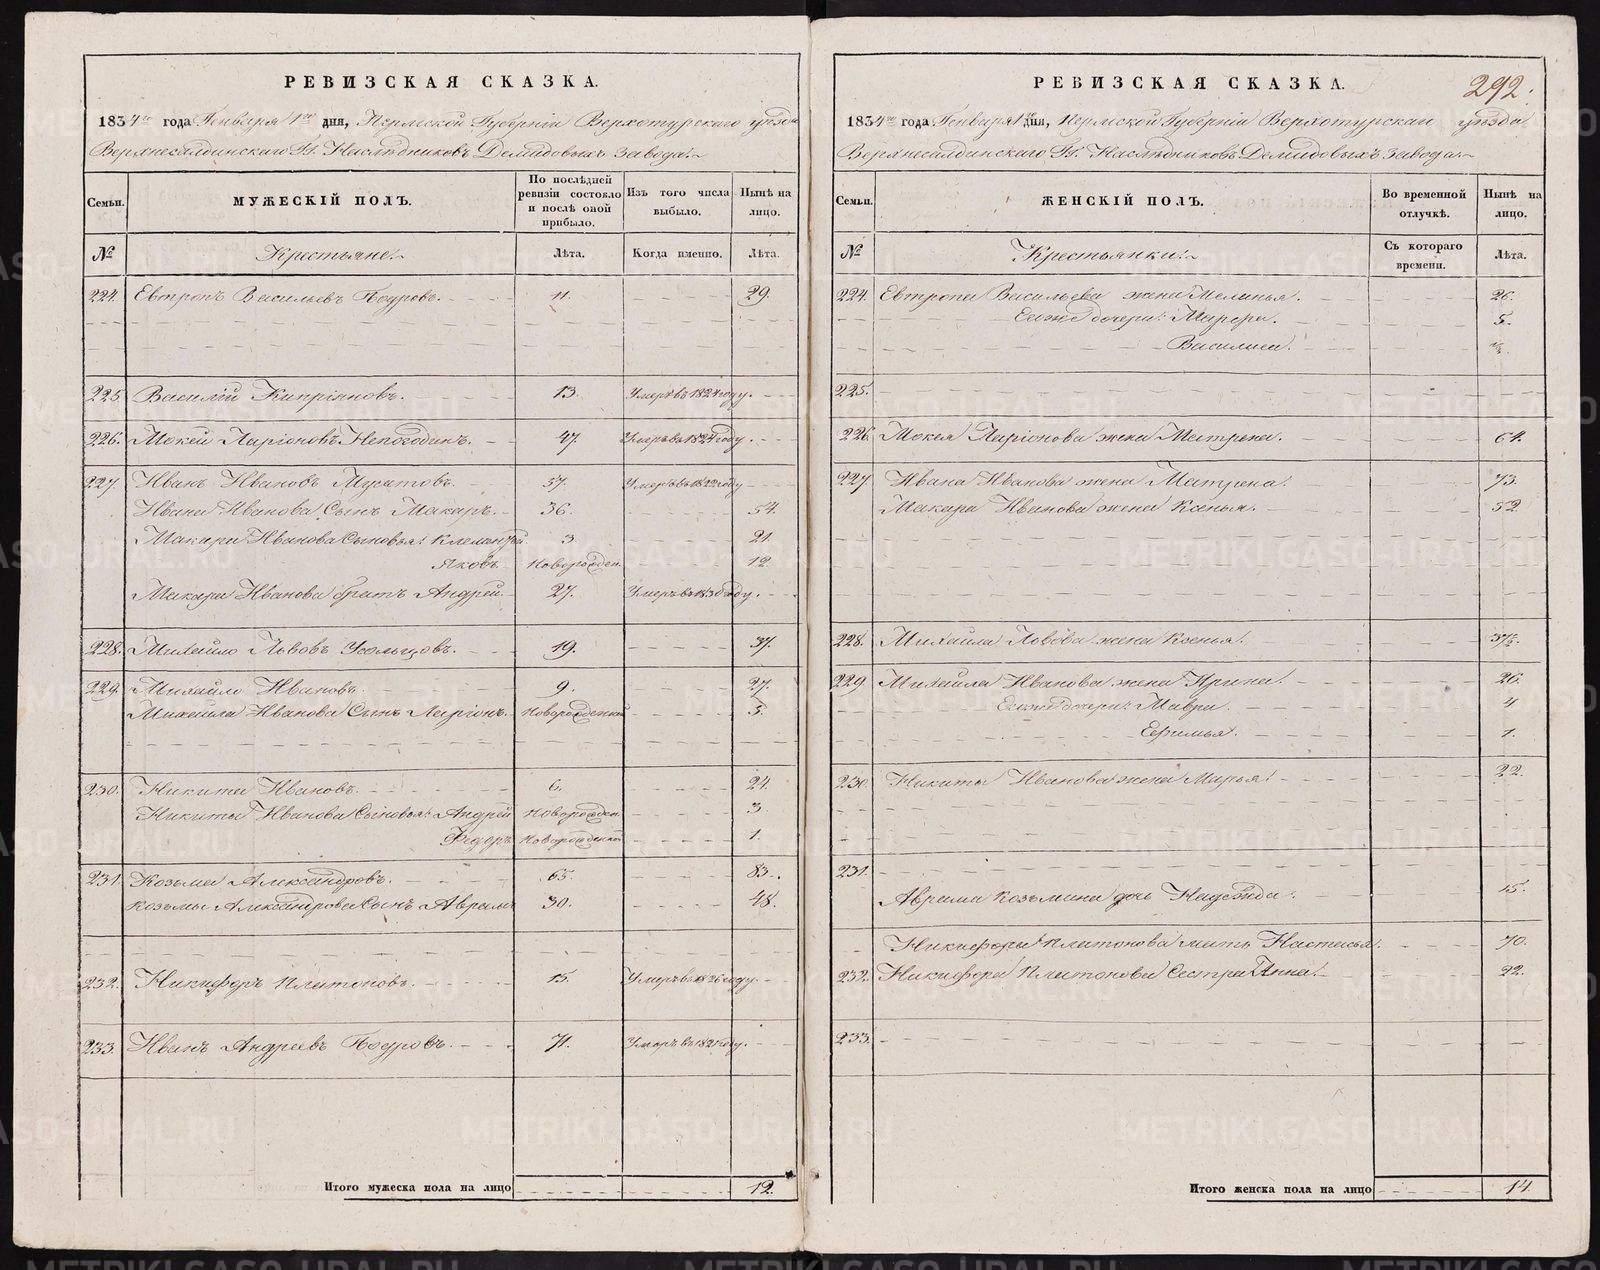 РЕВИЗСКАЯ СКАЗКА.
1834го года Генваря 1го дня, Пермской Губерніи Верхотурскаго уѣзда
Верхнесалдинскаго Гг. Наслѣдниковъ Демидовыхъ завода.
Семьи.
МУЖЕСКІЙ ПОЛЪ.
По послѣдней ревизіи состояло и послѣ оной прибыло.
Изъ того числа выбыло.
Нынѣ на лицо.
№
Крестьяне.
Лѣта.
Когда именно.
Лѣта.
224. Евтропъ Васильевъ 11. 29.
225 Василій Кипріяновъ. 13. Умеръ въ 1824 году.
226. Мокей Ларіоновъ Непогодинъ. 47. Умеръ въ 1824 году.
227. Иванъ Ивановъ 57. Умеръ въ 1822 году
Ивана Иванова Сынъ Макаръ. 36. 54.
Макара Иванова Сыновья: Клементій 3. 21.
Яковъ. Новорожден. 12
Макара Иванова братъ Андрей. 27. Умеръ въ 1830 году.
228. Михайло Львовъ Усольцовъ. 19. 37.
229. Михайло Ивановъ. 9. 27.
Михайла Иванова Сынъ Ларіонъ. Новорожденной 5.
230. Никита Ивановъ. 6. 24.
Никиты Иванова Сыновья: Андрей Новорожден. 3.
Федоръ Новорожденной 1.
231. Козьма Александровъ. 65. 83.
Козьмы Александрова Сынъ Аврамъ 30. 48.
232. Никифоръ Платоновъ. 15. Умеръ въ 1826 году.
233. Иванъ Андреевъ 71. Умеръ въ 1821 году.
Итого мужеска пола на лицо 12.
РЕВИЗСКАЯ СКАЗКА.
292.
1834го года Генваря 1го дня, Пермской Губерніи Верхотурскаго уѣзда
Верхнесалдинскаго Гг. Наслѣдниковъ Демидовыхъ завода.
Семьи.
ЖЕНСКІЙ ПОЛЪ.
Во временной отлучкѣ.
Нынѣ на лицо.
№
Крестьянки.
Съ котораго времени.
Лѣта.
224. Евтропа Васильева жена Меланья. 26.
Ея же дочери: Марфа. 5.
Василиса.
225.
226. Мокея Ларіонова жена Матрена. 64.
227 Ивана Иванова жена Матрена. 73.
Макара Иванова жена Ксенья. 52.
228. Михайла Львова жена Ксенья. 37.
229 Михайла Иванова жена Ирина. 26.
Ея же дочери: Мавра. 4
Ефимья. 1.
230. Никиты Иванова жена Марья. 22.
231.
Аврама Козьмина дочь Надежда. 15.
Никифора Платонова мать Настасья. 70.
232. Никифора Платонова Сестра Анна. 22.
233.
Итого женска пола на лицо 14
METRIKI.GASO-URAL.RU